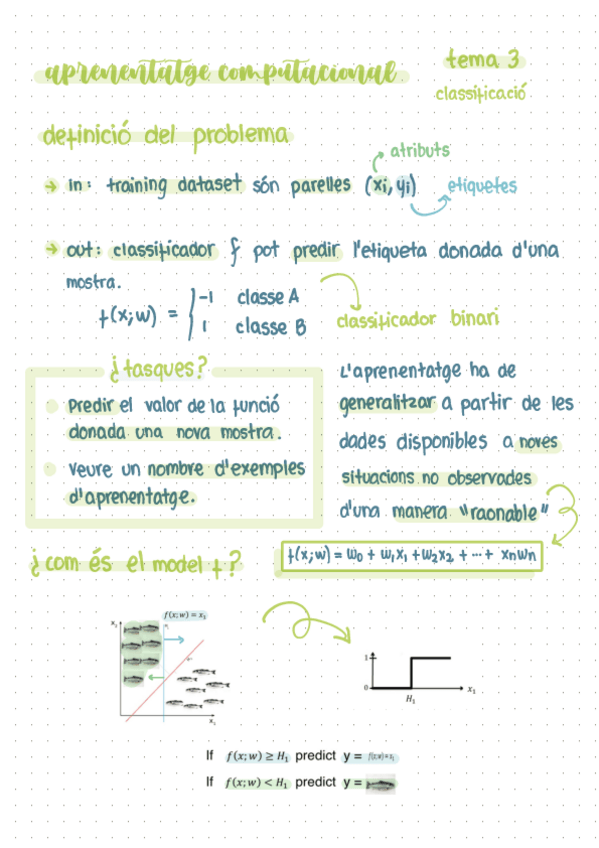 aprenentatge computacional
tema 3
classificació
definició del problema
atributs
→ in: training dataset són parelles (xi, yi)
etiquetes
→ out: classificador f pot predir l'etiqueta donada d'una
mostra.
f(x;w) = { -1 classe A
1 classe B
classificador binari
¿tasques?
Predir el valor de la funció
donada una nova mostra.
Veure un nombre d'exemples
d'aprenentatge.
L'aprenentatge ha de
generalitzar a partir de les
dades disponibles a noves
situacions no observades
d'una manera "raonable"
¿com és el model f?
f(x;w) = w₀ + w₁x₁ + w₂x₂ + ... + xnwn
f(x; w) = x₁
1
0
H₁
X₁
If f(x; w) ≥ H₁ predict y = f(x;w) = x₁
If f(x; w) < H₁ predict y =